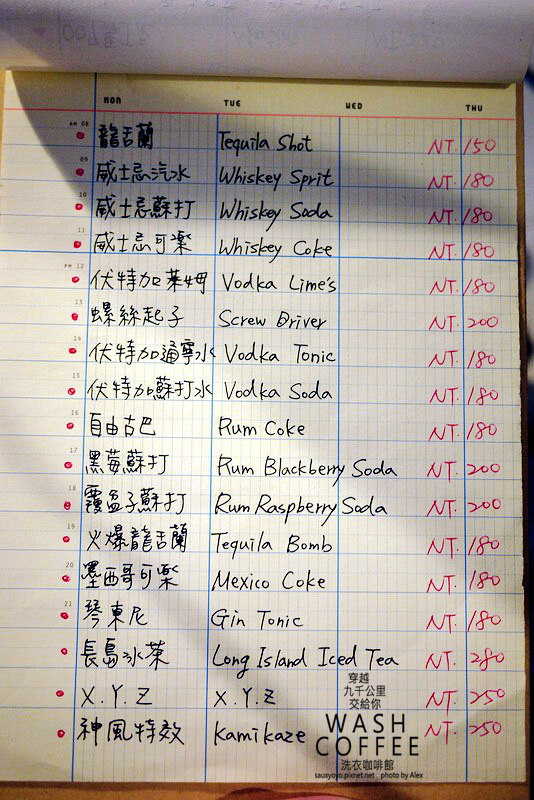 MON TUE WED THU
AM 08 龍舌蘭 Tequila Shot NT.150
09 威士忌汽水 Whiskey Sprit NT.180
10 威士忌蘇打 Whiskey Soda NT.180
11 威士忌可樂 Whiskey Coke NT.180
PM 12 伏特加萊姆 Vodka Lime's NT.180
13 螺絲起子 Screw Driver NT.200
14 伏特加通寧水 Vodka Tonic NT.180
15 伏特加蘇打水 Vodka Soda NT.180
16 自由古巴 Rum Coke NT.180
17 黑莓蘇打 Rum Blackberry Soda NT.200
18 覆盆子蘇打 Rum Raspberry Soda NT.200
19 火爆龍舌蘭 Tequila Bomb NT.180
20 墨西哥可樂 Mexico Coke NT.180
21 琴東尼 Gin Tonic NT.180
長島冰茶 Long Island Iced Tea NT.280
X.Y.Z X.Y.Z NT.250
神風特效 Kamikaze NT.250
穿越
九千公里
交給你
WASH
COFFEE
洗衣咖啡館
sauxyoyo.pixnet.net photo by Alex